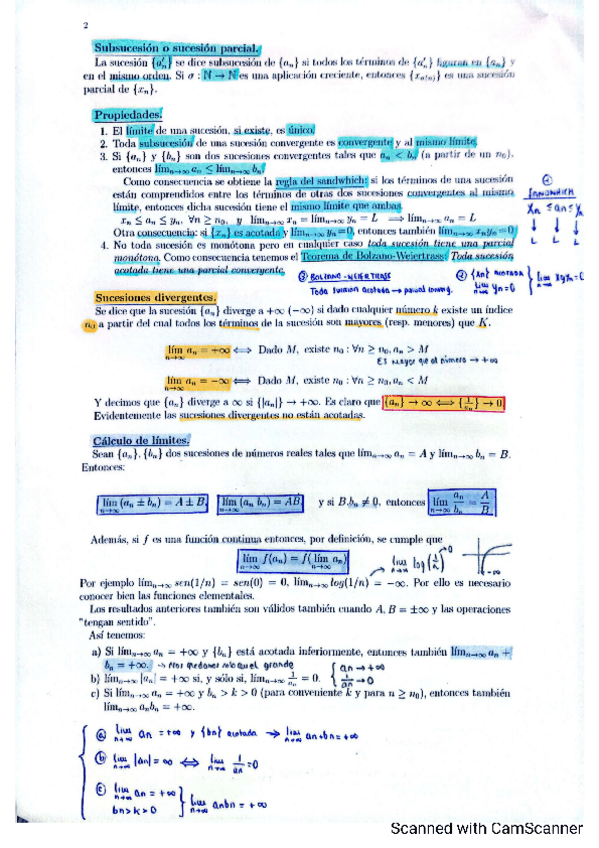 2
Subsucesión o sucesión parcial.
La sucesión {a'ₙ} se dice subsucesión de {aₙ} si todos los términos de {a'ₙ} figuran en {aₙ} y
en el mismo orden. Si σ : ℕ → ℕ es una aplicación creciente, entonces {x_σ(n)} es una sucesión
parcial de {xₙ}.
Propiedades.
1. El límite de una sucesión, si existe, es único.
2. Toda subsucesión de una sucesión convergente es convergente y al mismo límite.
3. Si {aₙ} y {bₙ} son dos sucesiones convergentes tales que aₙ < bₙ (a partir de un n₀),
entonces límₙ→∞ aₙ ≤ límₙ→∞ bₙ
Como consecuencia se obtiene la regla del sandwhich: si los términos de una sucesión
están comprendidos entre los términos de otras dos sucesiones convergentes al mismo
límite, entonces dicha sucesión tiene el mismo límite que ambas.
xₙ ≤ aₙ ≤ yₙ, ∀n ≥ n₀, y límₙ→∞ xₙ = límₙ→∞ yₙ = L ⟹ límₙ→∞ aₙ = L
Otra consecuencia: si {xₙ} es acotada y límₙ→∞ yₙ = 0, entonces también límₙ→∞ xₙyₙ = 0
SANDWHICH
Xₙ ≤ aₙ ≤ Yₙ
↓ ↓ ↓
L L L
4. No toda sucesión es monótona pero en cualquier caso toda sucesión tiene una parcial
monótona. Como consecuencia tenemos el Teorema de Bolzano-Weiertrass: Toda sucesión
acotada tiene una parcial convergente.
③ BOLZANO-WEIERTRASS
Toda función acotada → parcial converg.
② {Xn} acotada
lim n→∞ yn = 0 } lim n→∞ Xnyn = 0
Sucesiones divergentes.
Se dice que la sucesión {aₙ} diverge a +∞ (−∞) si dado cualquier número k existe un índice
n₀ a partir del cual todos los términos de la sucesión son mayores (resp. menores) que K.
lím n→∞ aₙ = +∞ ⟺ Dado M, existe n₀ : ∀n ≥ n₀, aₙ > M
Es mayor que el número → +∞
lím n→∞ aₙ = −∞ ⟺ Dado M, existe n₀ : ∀n ≥ n₀, aₙ < M
Y decimos que {aₙ} diverge a ∞ si {|aₙ|} → +∞. Es claro que {aₙ} → ∞ ⟺ {1/aₙ} → 0
Evidentemente las sucesiones divergentes no están acotadas.
Cálculo de límites.
Sean {aₙ}, {bₙ} dos sucesiones de números reales tales que límₙ→∞ aₙ = A y límₙ→∞ bₙ = B.
Entonces:
lím n→∞ (aₙ ± bₙ) = A ± B, lím n→∞ (aₙ bₙ) = AB, y si B, bₙ ≠ 0, entonces lím n→∞ aₙ/bₙ = A/B
Además, si f es una función continua entonces, por definición, se cumple que
lím n→∞ f(aₙ) = f( lím n→∞ aₙ)
lim n→∞ log(1/n) → 0
→ −∞
Por ejemplo límₙ→∞ sen(1/n) = sen(0) = 0, límₙ→∞ log(1/n) = −∞. Por ello es necesario
conocer bien las funciones elementales.
Los resultados anteriores también son válidos también cuando A, B = ±∞ y las operaciones
"tengan sentido".
Así tenemos:
a) Si límₙ→∞ aₙ = +∞ y {bₙ} está acotada inferiormente, entonces también límₙ→∞ aₙ +
bₙ = +∞. → Nos quedamos solo que el grande
b) límₙ→∞ |aₙ| = +∞ si, y sólo si, límₙ→∞ 1/aₙ = 0. { an → +∞
1/an → 0
c) Si límₙ→∞ aₙ = +∞ y bₙ > k > 0 (para conveniente k y para n ≥ n₀), entonces también
límₙ→∞ aₙbₙ = +∞.
ⓐ lim n→∞ an = +∞ y {bn} acotada → lim n→∞ an+bn = +∞
ⓑ lim n→∞ |an| = ∞ ⟺ lim n→∞ 1/an = 0
ⓒ lim n→∞ an = +∞
bn > k > 0 } lim n→∞ anbn = +∞
Scanned with CamScanner